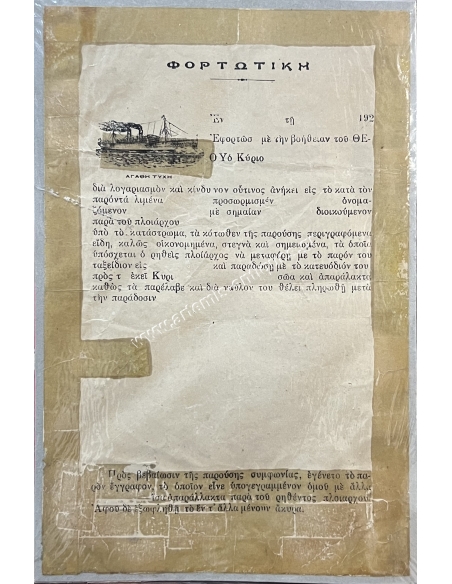 ΦΟΡΤΩΤΙΚΗ
Ἐν τῇ 192
Ἐφορτώσ με τὴν βοήθειαν τοῦ ΘΕ-
ΟΥ ὁ Κύριο
ΑΓΑΘΗ ΤΥΧΗ
διὰ λογαριασμὸν καὶ κίνδυνον οὕτινος ἀνήκει εἰς τὸ κατὰ τὸν
παρόντα λιμένα προσωρμισμέν ὀνομα-
ζόμενον μὲ σημαίαν διοικούμενον
παρὰ τοῦ πλοιάρχου
ὑπὸ τὸ κατάστρωμα, τὰ κάτωθεν τῆς παρούσης περιγραφόμενα
εἴδη, καλῶς οἰκονομημένα, στεγνὰ καὶ σημειωμένα, τὰ ὁποῖα
ὑπόσχεται ὁ ρηθεὶς πλοίαρχος νὰ μεταφέρῃ, μὲ τὸ παρόν του
ταξείδιον εἰς καὶ παραδώσῃ μὲ τὸ κατευόδιόν του
πρὸς τ ἐκεῖ Κυρι σῶα καὶ ἀπαράλακτα
καθὼς τὰ παρέλαβε καὶ διὰ ναῦλον του θέλει πληρωθῇ μετὰ
τὴν παράδοσιν
Πρὸς βεβαίωσιν τῆς παρούσης συμφωνίας, ἐγένετο τὸ πα-
ρὸν ἔγγραφον, τὸ ὁποῖον εἶνε ὑπογεγραμμένον ὁμοῦ μὲ ἄλλα
ἀπαράλλακτα παρὰ τοῦ ρηθέντος πλοιάρχου
Ἀφοῦ δὲ ἐξοφληθῇ τὸ ἓν τ' ἄλλα μένουν ἄκυρα.